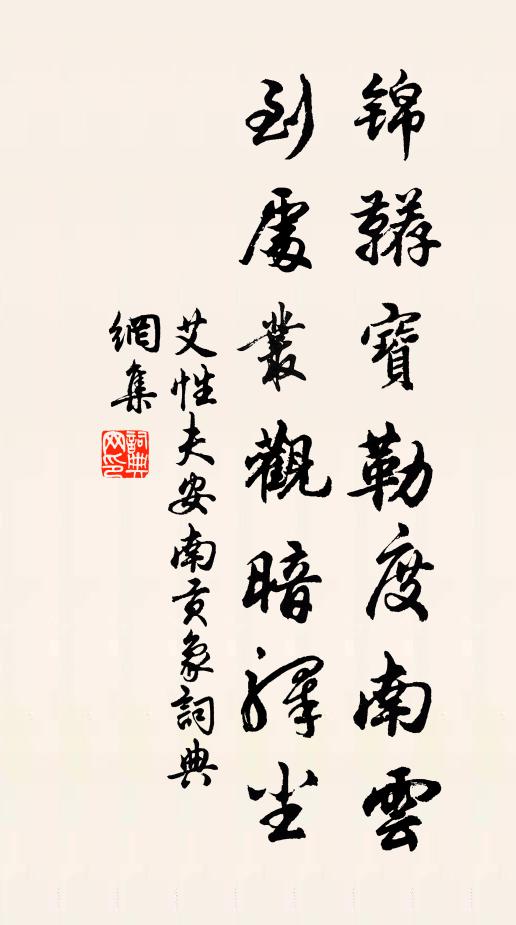 錦鞯寶勒度南雲
到處叢觀暗驛塵
艾性夫安南貢象詞典
網集
詞典
网印